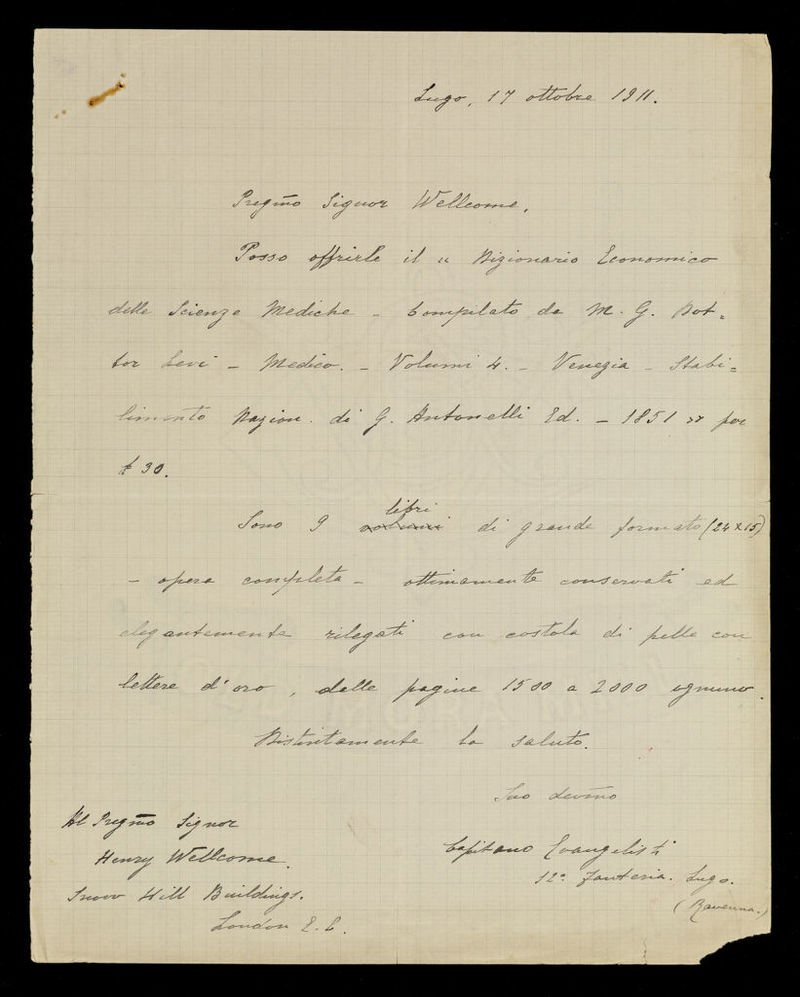 Lugo, 17 ottobre 1911.
Pregmo Signor Wellcome,
Posso offrirle il « Dizionario Economico
delle Scienze Mediche - Compilato da M. G. Dot=
tor Levi - Medico. - Volumi 4. - Venezia - Stabi=
limento Nazion. di G. Antonelli Ed. - 1851 » per
£ 30.
Sono 9 volumi libri di grande formato (24x15)
- opera completa - ottimamente conservati ed
elegantemente rilegati con costola di pelle con
lettere d'oro, dalle pagine 1500 a 2000 ognuno.
Distintamente La saluto.
Suo devmo
Capitano Evangelisti
12° Fanteria. Lugo.
(Ravenna.)
Al Pregmo Signor
Henry Wellcome.
Snow Hill Buildings.
London E. C.